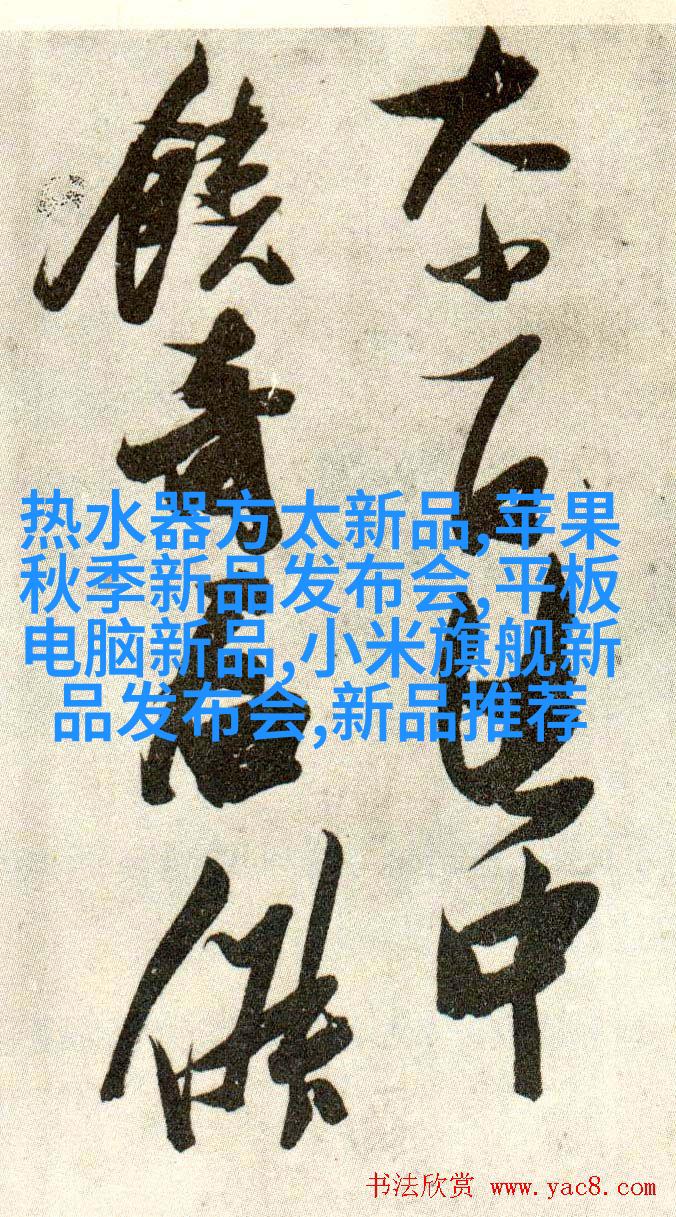 大小中
饒奇
热水器方太新品,苹果
秋季新品发布会,平板
电脑新品,小米旗舰新
品发布会,新品推荐
书法欣赏 www.yac8.com